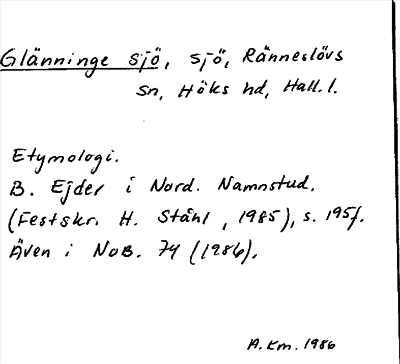 Glänninge sjö, sjö, Ränneslövs
sn, Höks hd, Hall. l.
Etymologi.
B. Ejder i Nord. Namnstud.
(Festskr. H. Ståhl, 1985), s. 195f.
Även i NoB. 74 (1986).
A. Km. 1986